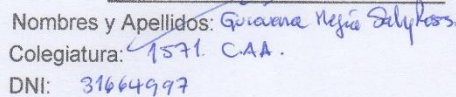 Nombres y Apellidos: Giovana Mejía
Colegiatura: 1571. C.A.A.
DNI: 31664997